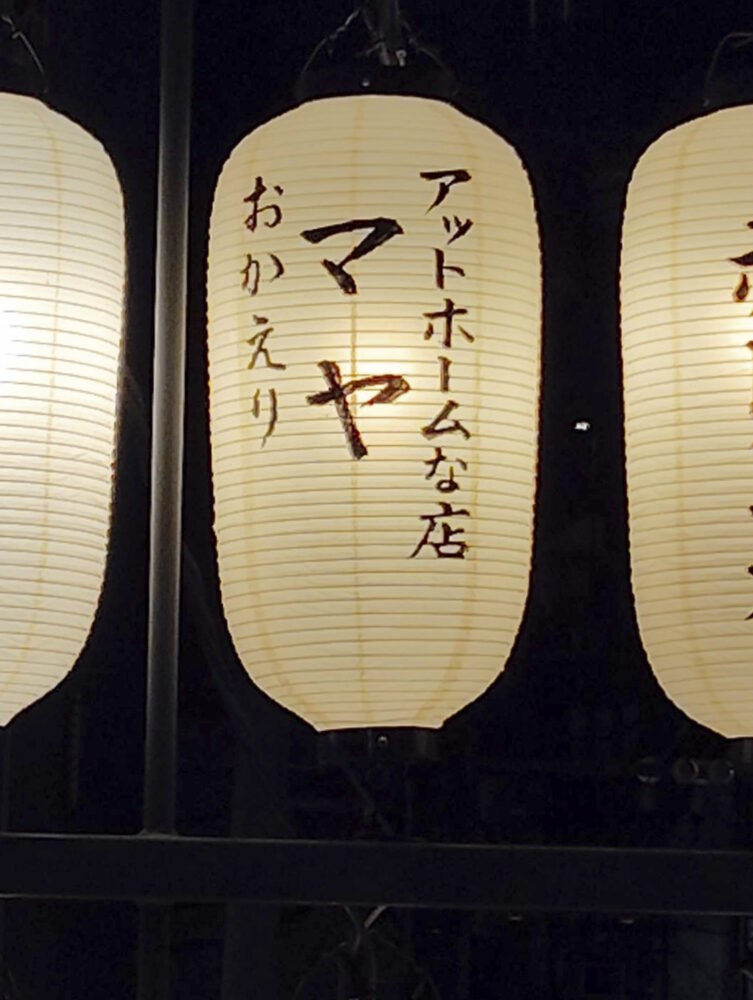 アットホームな店
マヤ
おかえり